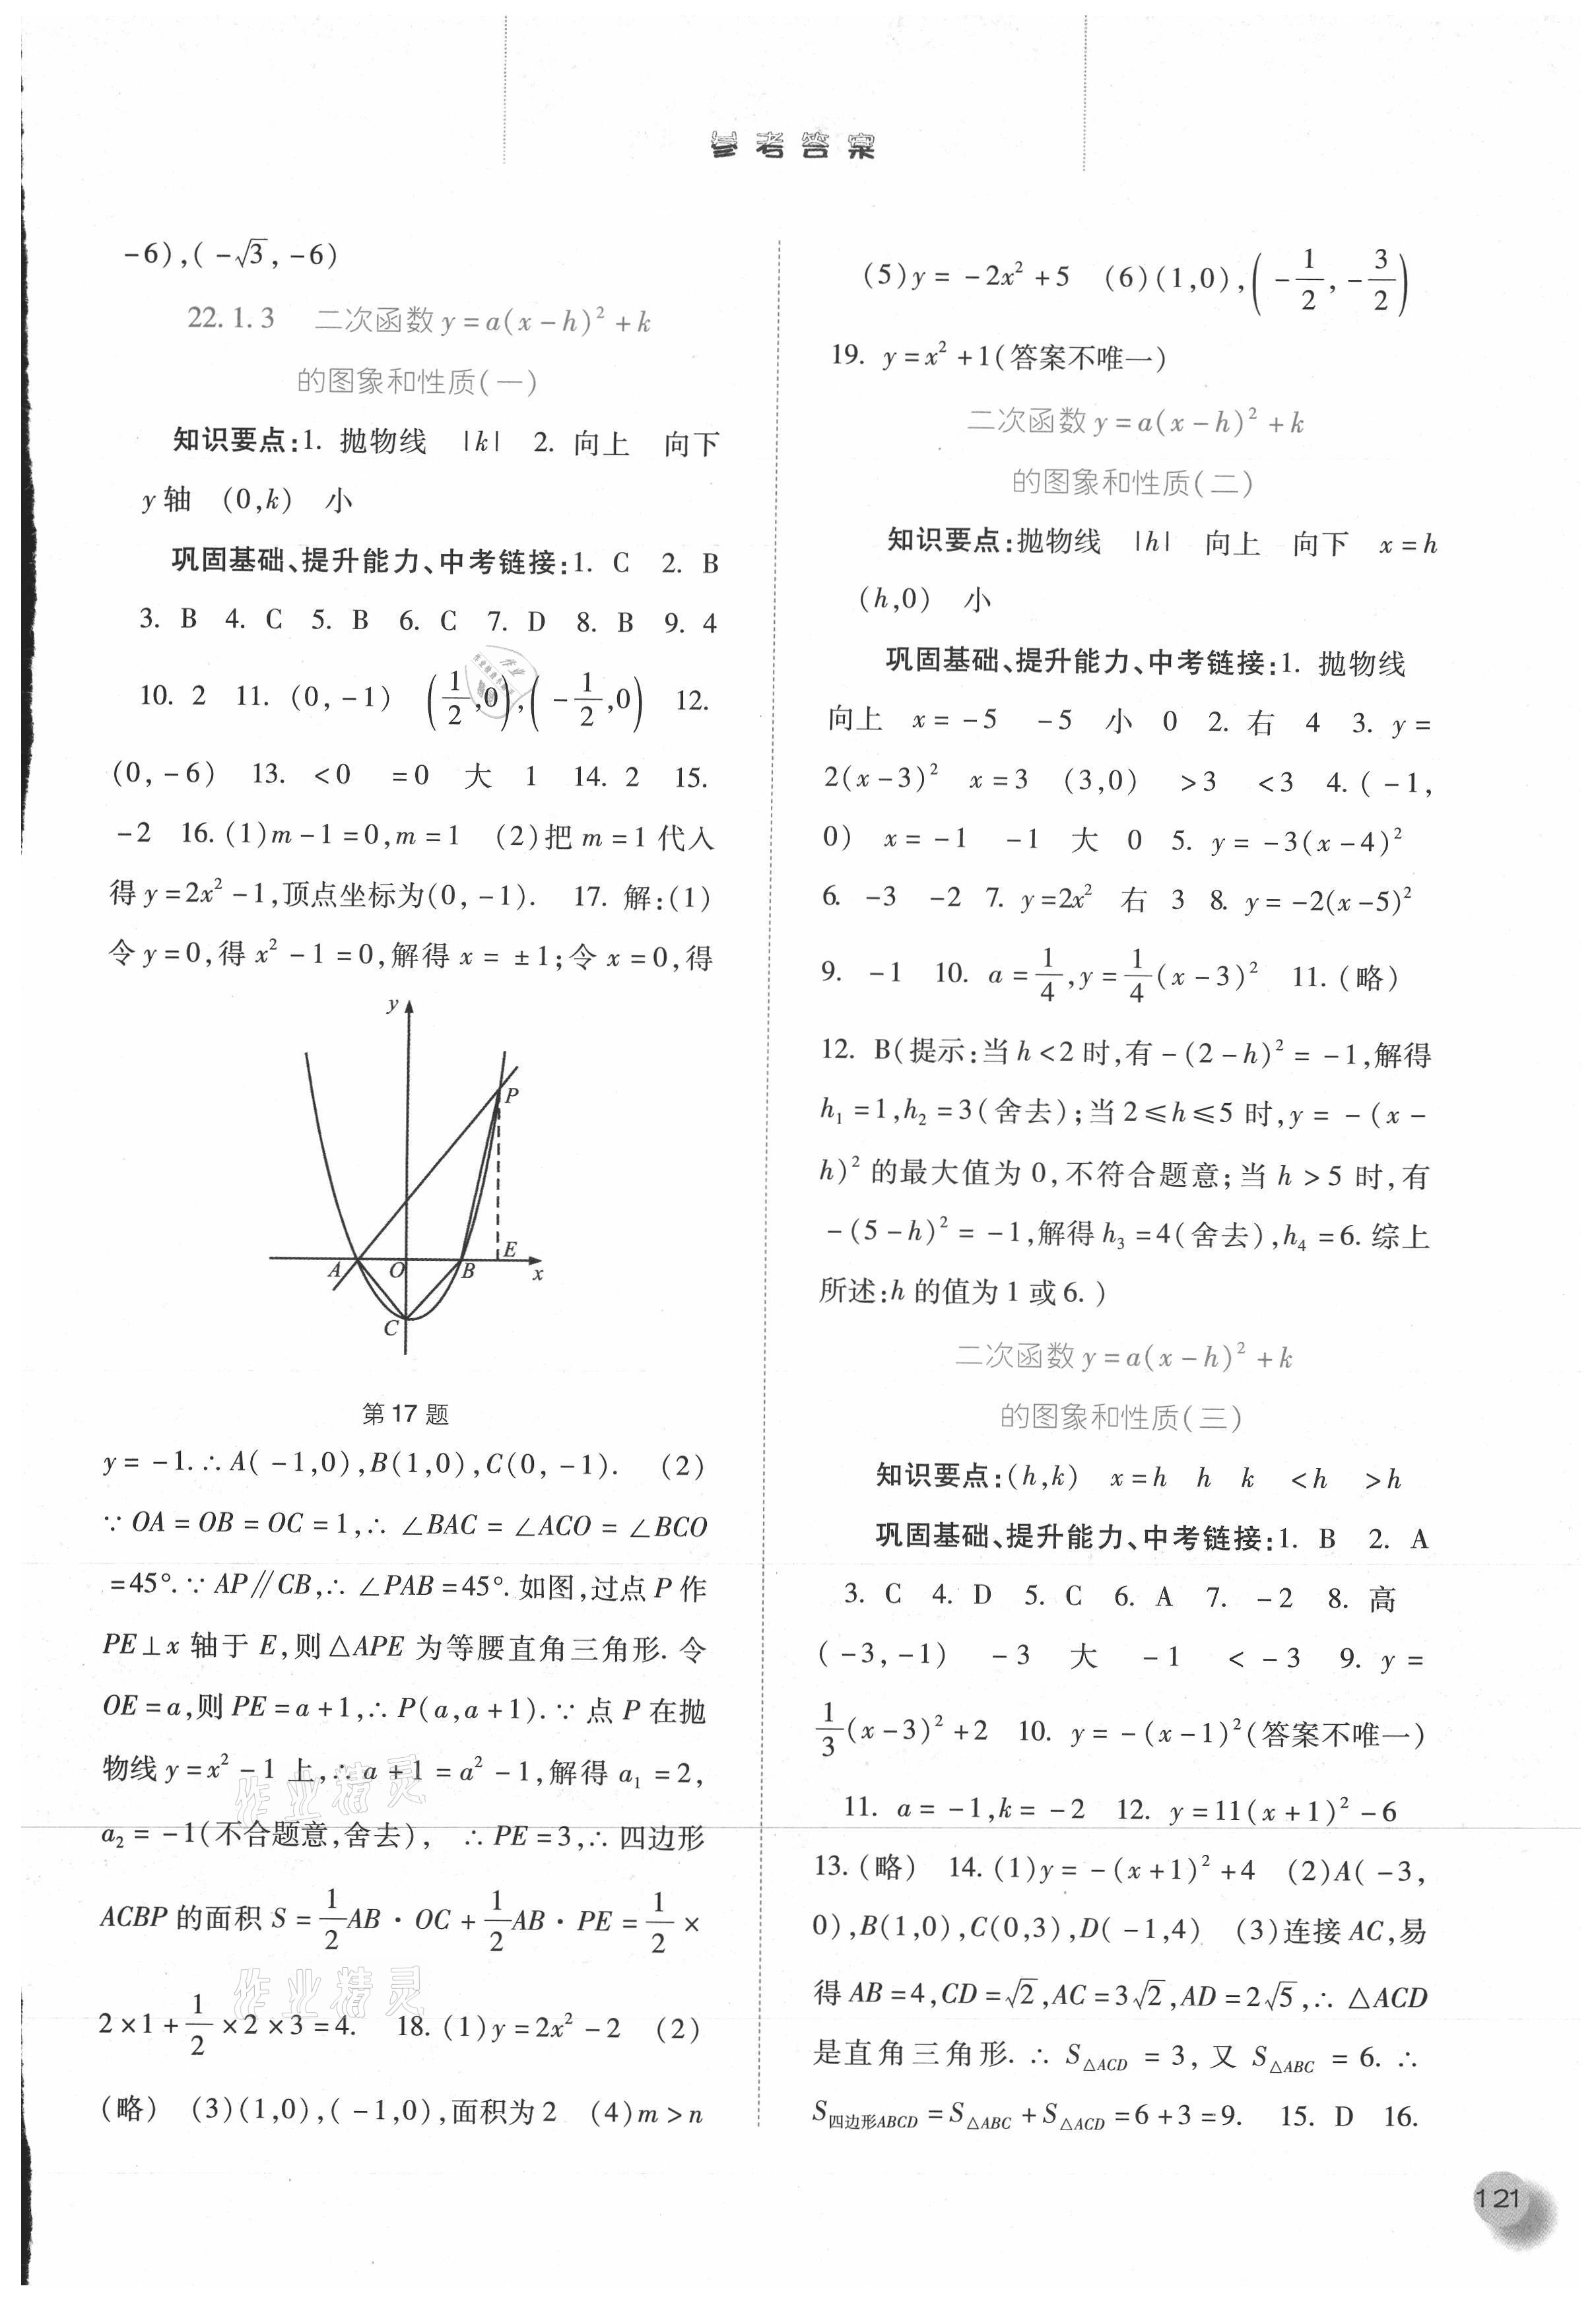 参考答案
-6),(-√3,-6)
22.1.3 二次函数y=a(x-h)²+k
的图象和性质(一)
知识要点:1. 抛物线 |k| 2. 向上 向下
y轴 (0,k) 小
巩固基础、提升能力、中考链接:1. C 2. B
3. B 4. C 5. B 6. C 7. D 8. B 9. 4
10. 2 11. (0,-1) (1/2,0),(-1/2,0) 12.
(0,-6) 13. <0 =0 大 1 14. 2 15.
-2 16. (1)m-1=0,m=1 (2)把m=1代入
得y=2x²-1,顶点坐标为(0,-1). 17. 解:(1)
令y=0,得x²-1=0,解得x=±1;令x=0,得
y
P
A O B E x
C
第17题
y=-1.∴A(-1,0),B(1,0),C(0,-1). (2)
∵OA=OB=OC=1,∴∠BAC=∠ACO=∠BCO
=45°.∵AP∥CB,∴∠PAB=45°.如图,过点P作
PE⊥x轴于E,则△APE为等腰直角三角形.令
OE=a,则PE=a+1,∴P(a,a+1).∵点P在抛
物线y=x²-1上,∴a+1=a²-1,解得a₁=2,
a₂=-1(不合题意,舍去), ∴PE=3,∴四边形
ACBP的面积S=1/2AB·OC+1/2AB·PE=1/2×
2×1+1/2×2×3=4. 18. (1)y=2x²-2 (2)
(略) (3)(1,0),(-1,0),面积为2 (4)m>n
(5)y=-2x²+5 (6)(1,0),(-1/2,-3/2)
19. y=x²+1(答案不唯一)
二次函数y=a(x-h)²+k
的图象和性质(二)
知识要点:抛物线 |h| 向上 向下 x=h
(h,0) 小
巩固基础、提升能力、中考链接:1. 抛物线
向上 x=-5 -5 小 0 2. 右 4 3. y=
2(x-3)² x=3 (3,0) >3 <3 4. (-1,
0) x=-1 -1 大 0 5. y=-3(x-4)²
6. -3 -2 7. y=2x² 右 3 8. y=-2(x-5)²
9. -1 10. a=1/4,y=1/4(x-3)² 11. (略)
12. B(提示:当h<2时,有-(2-h)²=-1,解得
h₁=1,h₂=3(舍去);当2≤h≤5时,y=-(x-
h)²的最大值为0,不符合题意;当h>5时,有
-(5-h)²=-1,解得h₃=4(舍去),h₄=6.综上
所述:h的值为1或6.)
二次函数y=a(x-h)²+k
的图象和性质(三)
知识要点:(h,k) x=h h k <h >h
巩固基础、提升能力、中考链接:1. B 2. A
3. C 4. D 5. C 6. A 7. -2 8. 高
(-3,-1) -3 大 -1 <-3 9. y=
1/3(x-3)²+2 10. y=-(x-1)²(答案不唯一)
11. a=-1,k=-2 12. y=11(x+1)²-6
13. (略) 14. (1)y=-(x+1)²+4 (2)A(-3,
0),B(1,0),C(0,3),D(-1,4) (3)连接AC,易
得AB=4,CD=√2,AC=3√2,AD=2√5,∴△ACD
是直角三角形.∴S△ACD=3,又S△ABC=6.∴
S四边形ABCD=S△ABC+S△ACD=6+3=9. 15. D 16.
作业精灵
作业精灵
121